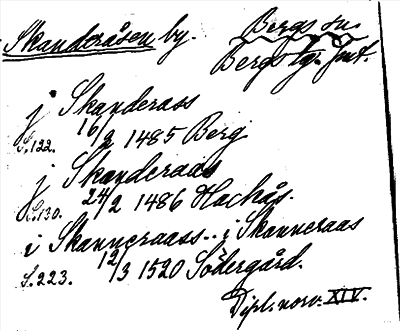 Skanderåsen by. Bergs sn.
Bergs tg. Jmt.
j Skanderaas
S.122. 16/2 1485 Berg
j Skanderaas
S.130. 24/2 1486 Hackås.
i Skanneraass.. i Skanneraas
S.223. 12/3 1520 Södergård.
Dipl. norv. XIV.